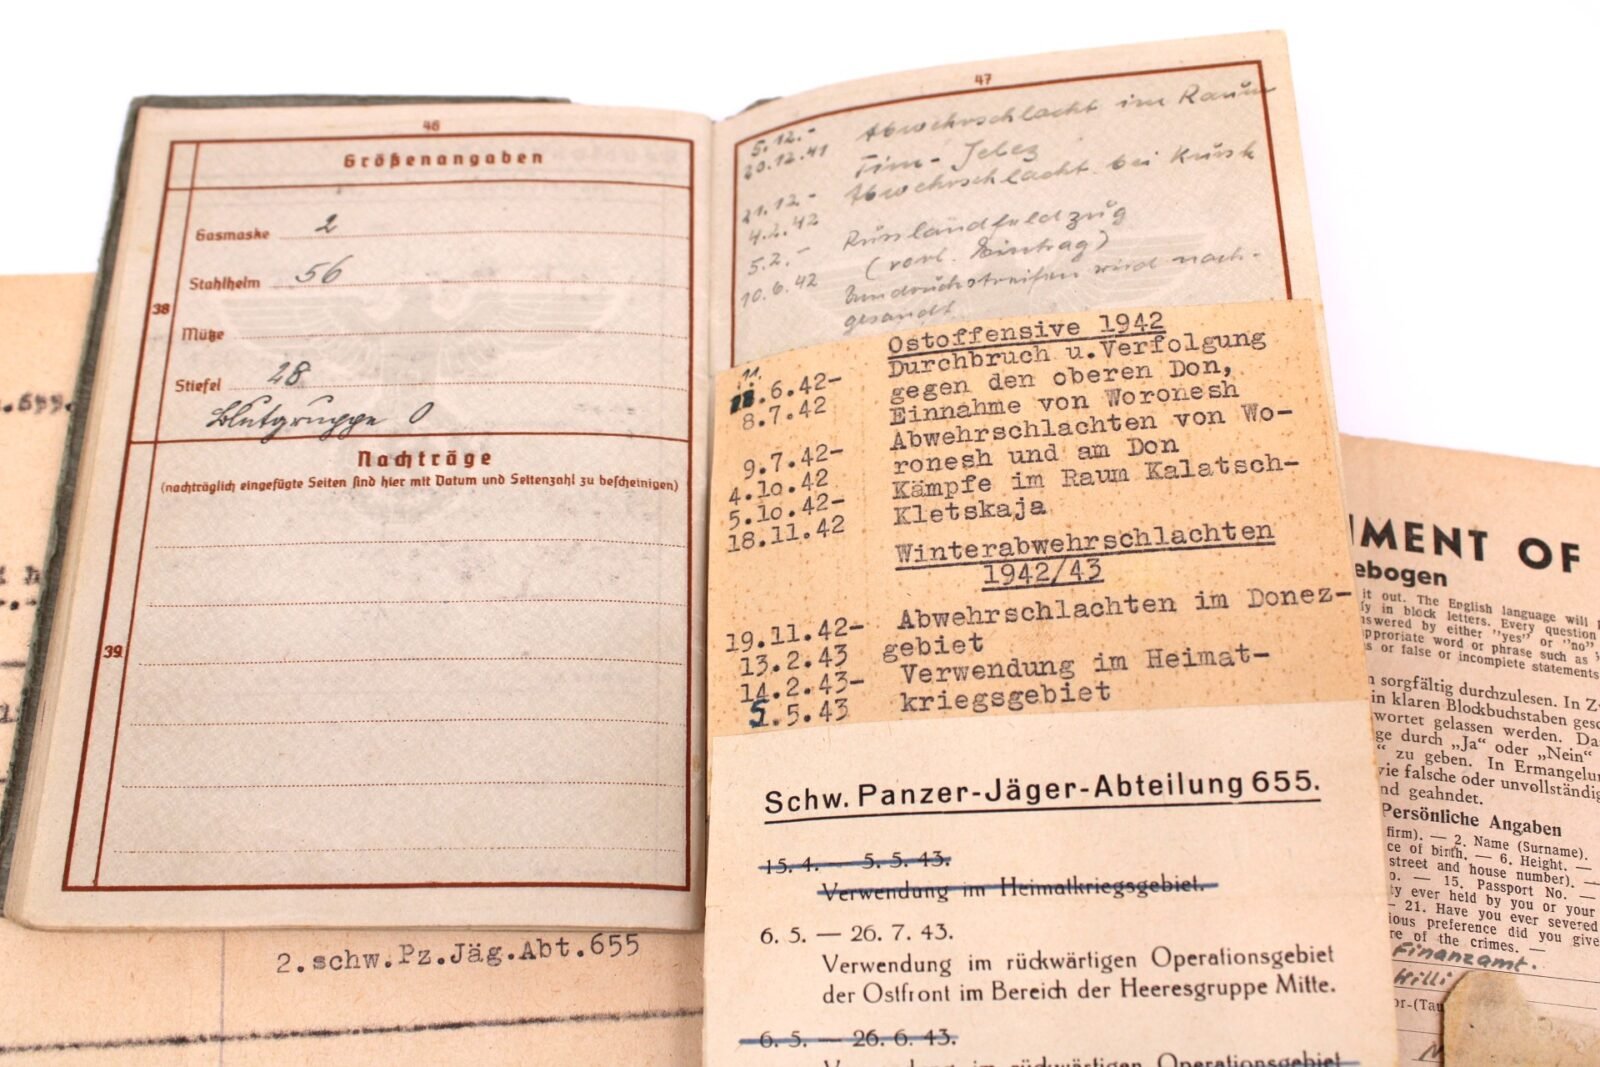 46
Größenangaben
38
Gasmaske 2
Stahlhelm 56
Mütze
Stiefel 28
Blutgruppe 0
Nachträge
(nachträglich eingefügte Seiten sind hier mit Datum und Seitenzahl zu bescheinigen)
39
47
5.12.- Abwehrschlacht im Raum
20.12.41 Tim - Jelez
21.12.- Abwehrschlacht bei Kursk
4.2.42
5.2.- Russlandfeldzug
10.6.42 (vorl. Eintrag)
wird nach-
gesandt
Ostoffensive 1942
11.
.6.42- Durchbruch u.Verfolgung
8.7.42 gegen den oberen Don,
Einnahme von Woronesh
9.7.42- Abwehrschlachten von Wo-
4.10.42 ronesh und am Don
5.10.42- Kämpfe im Raum Kalatsch-
18.11.42 Kletskaja
Winterabwehrschlachten
1942/43
19.11.42- Abwehrschlachten im Donez-
13.2.43 gebiet
14.2.43- Verwendung im Heimat-
5.5.43 kriegsgebiet
Schw. Panzer-Jäger-Abteilung 655.
15. 4. — 5. 5. 43.
Verwendung im Heimatkriegsgebiet.
6. 5. — 26. 7. 43.
Verwendung im rückwärtigen Operationsgebiet
der Ostfront im Bereich der Heeresgruppe Mitte.
6. 5. — 26. 6. 43.
Verwendung im rückwärtigen Operationsgebiet
.699.
2.schw.Pz.Jäg.Abt.655
MENT OF
ebogen
it out. The English language will
in block letters. Every question
swered by either "yes" or "no"
ppropriate word or phrase such as
s or false or incomplete statements
sorgfältig durchzulesen. In
in klaren Blockbuchstaben
wortet gelassen werden. Da
ge durch „Ja“ oder „Nein“
“ zu geben. In Ermangelun
wie falsche oder unvollständig
nd geahndet.
Persönliche Angaben
firm). — 2. Name (Surname).
ce of birth. — 6. Height. —
street and house number). —
o. — 15. Passport No. —
ty ever held by you or your
— 21. Have you ever severed
ious preference did you give
re of the crimes. —
Finanzamt.
Willi
or-(Tau